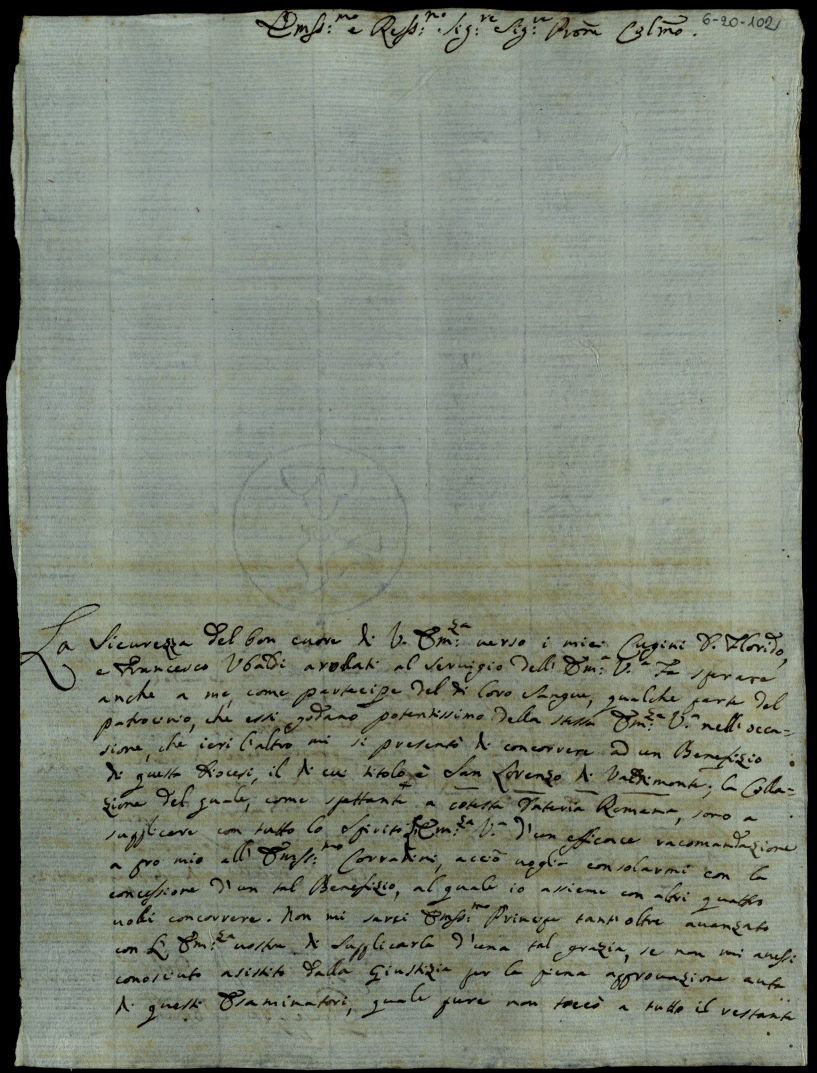 6-20-102
Em̃ss:mo e Reṽss:mo Sig:re Sig:re Pron̄e Col̄mo.
La Sicurezza del bon cuore di V. Em:za verso i miei Cugini D. Florido,
e Francesco Ubaldi arolati al servigio dell' Em:a V.a Fa sperare
anche a me, come partecipe del di loro Sangue, qualche parte del
patrocinio, che essi godano potentissimo della stessa Em:za V.a nell' occa=
sione, che ieri l'altro mi si presentò di concorrere ad un Benefizio
di questa Diocesi, il di cui titolo è San Lorenzo di Valdimonte; la Colla=
zione del quale, come spettante a cotesta Dateria Romana, sono a
supplicare con tutto lo Spirito Em:za V.a d'un efficace racomandazione
a pro mio all' Em̃ss:mo Corradini, acciò voglia consolarmi con la
concessione d'un tal Benefizio, al quale io assieme con altri quattro
volli concorrere. Non mi sarei Em̃ss:mo Principe tant'oltre avanzato
con L'Em:za vostra di supplicarla d'una tal grazia, se non mi avessi
conosciuto asistito dalla Giustizia per la piena approvazione auta
di questi Esaminatori, quale pure non toccò a tutto il restante